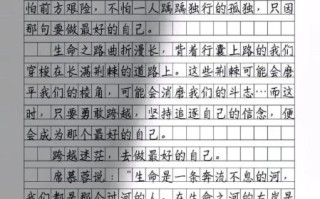 怕前方艰险，不怕一人踽踽独行的孤独，只因
那句要做最好的自己。
生命之路曲折漫长，背着行囊上路的我们
穿梭在长满荆棘的道路上。这些荆棘可能会磨
平我们的棱角，可能会消磨我们的斗志…而这
时，只要勇敢跨越，坚持追逐自己的信念，便
会成为那个最好的自己。
跨越迷茫，去做最好的自己。
席慕蓉说：“生命是一条奔流不息的河，
我们都是那个过河的人。在生命之河的左岸是